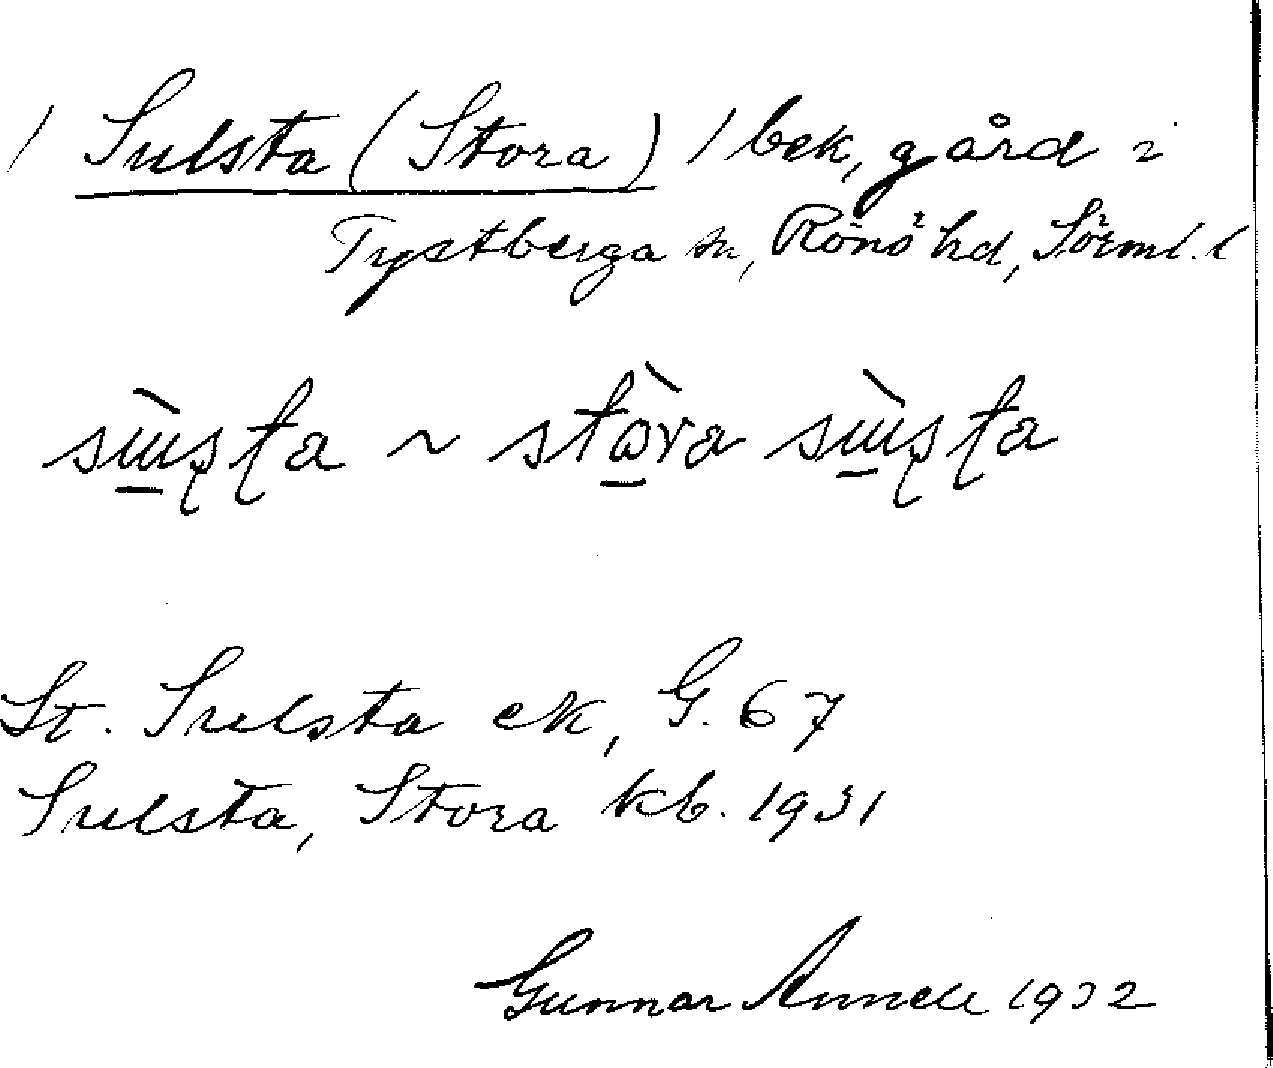 / Sulsta (Stora) / bek, gård i
Tystberga sn, Rönö hd, Sörml. l
sɯ̀ʂʈa ~ stɷ̀ra sɯ̀ʂʈa
St. Sulsta ek, G. 67
Sulsta, Stora kb. 1931
Gunnar Annell 1932